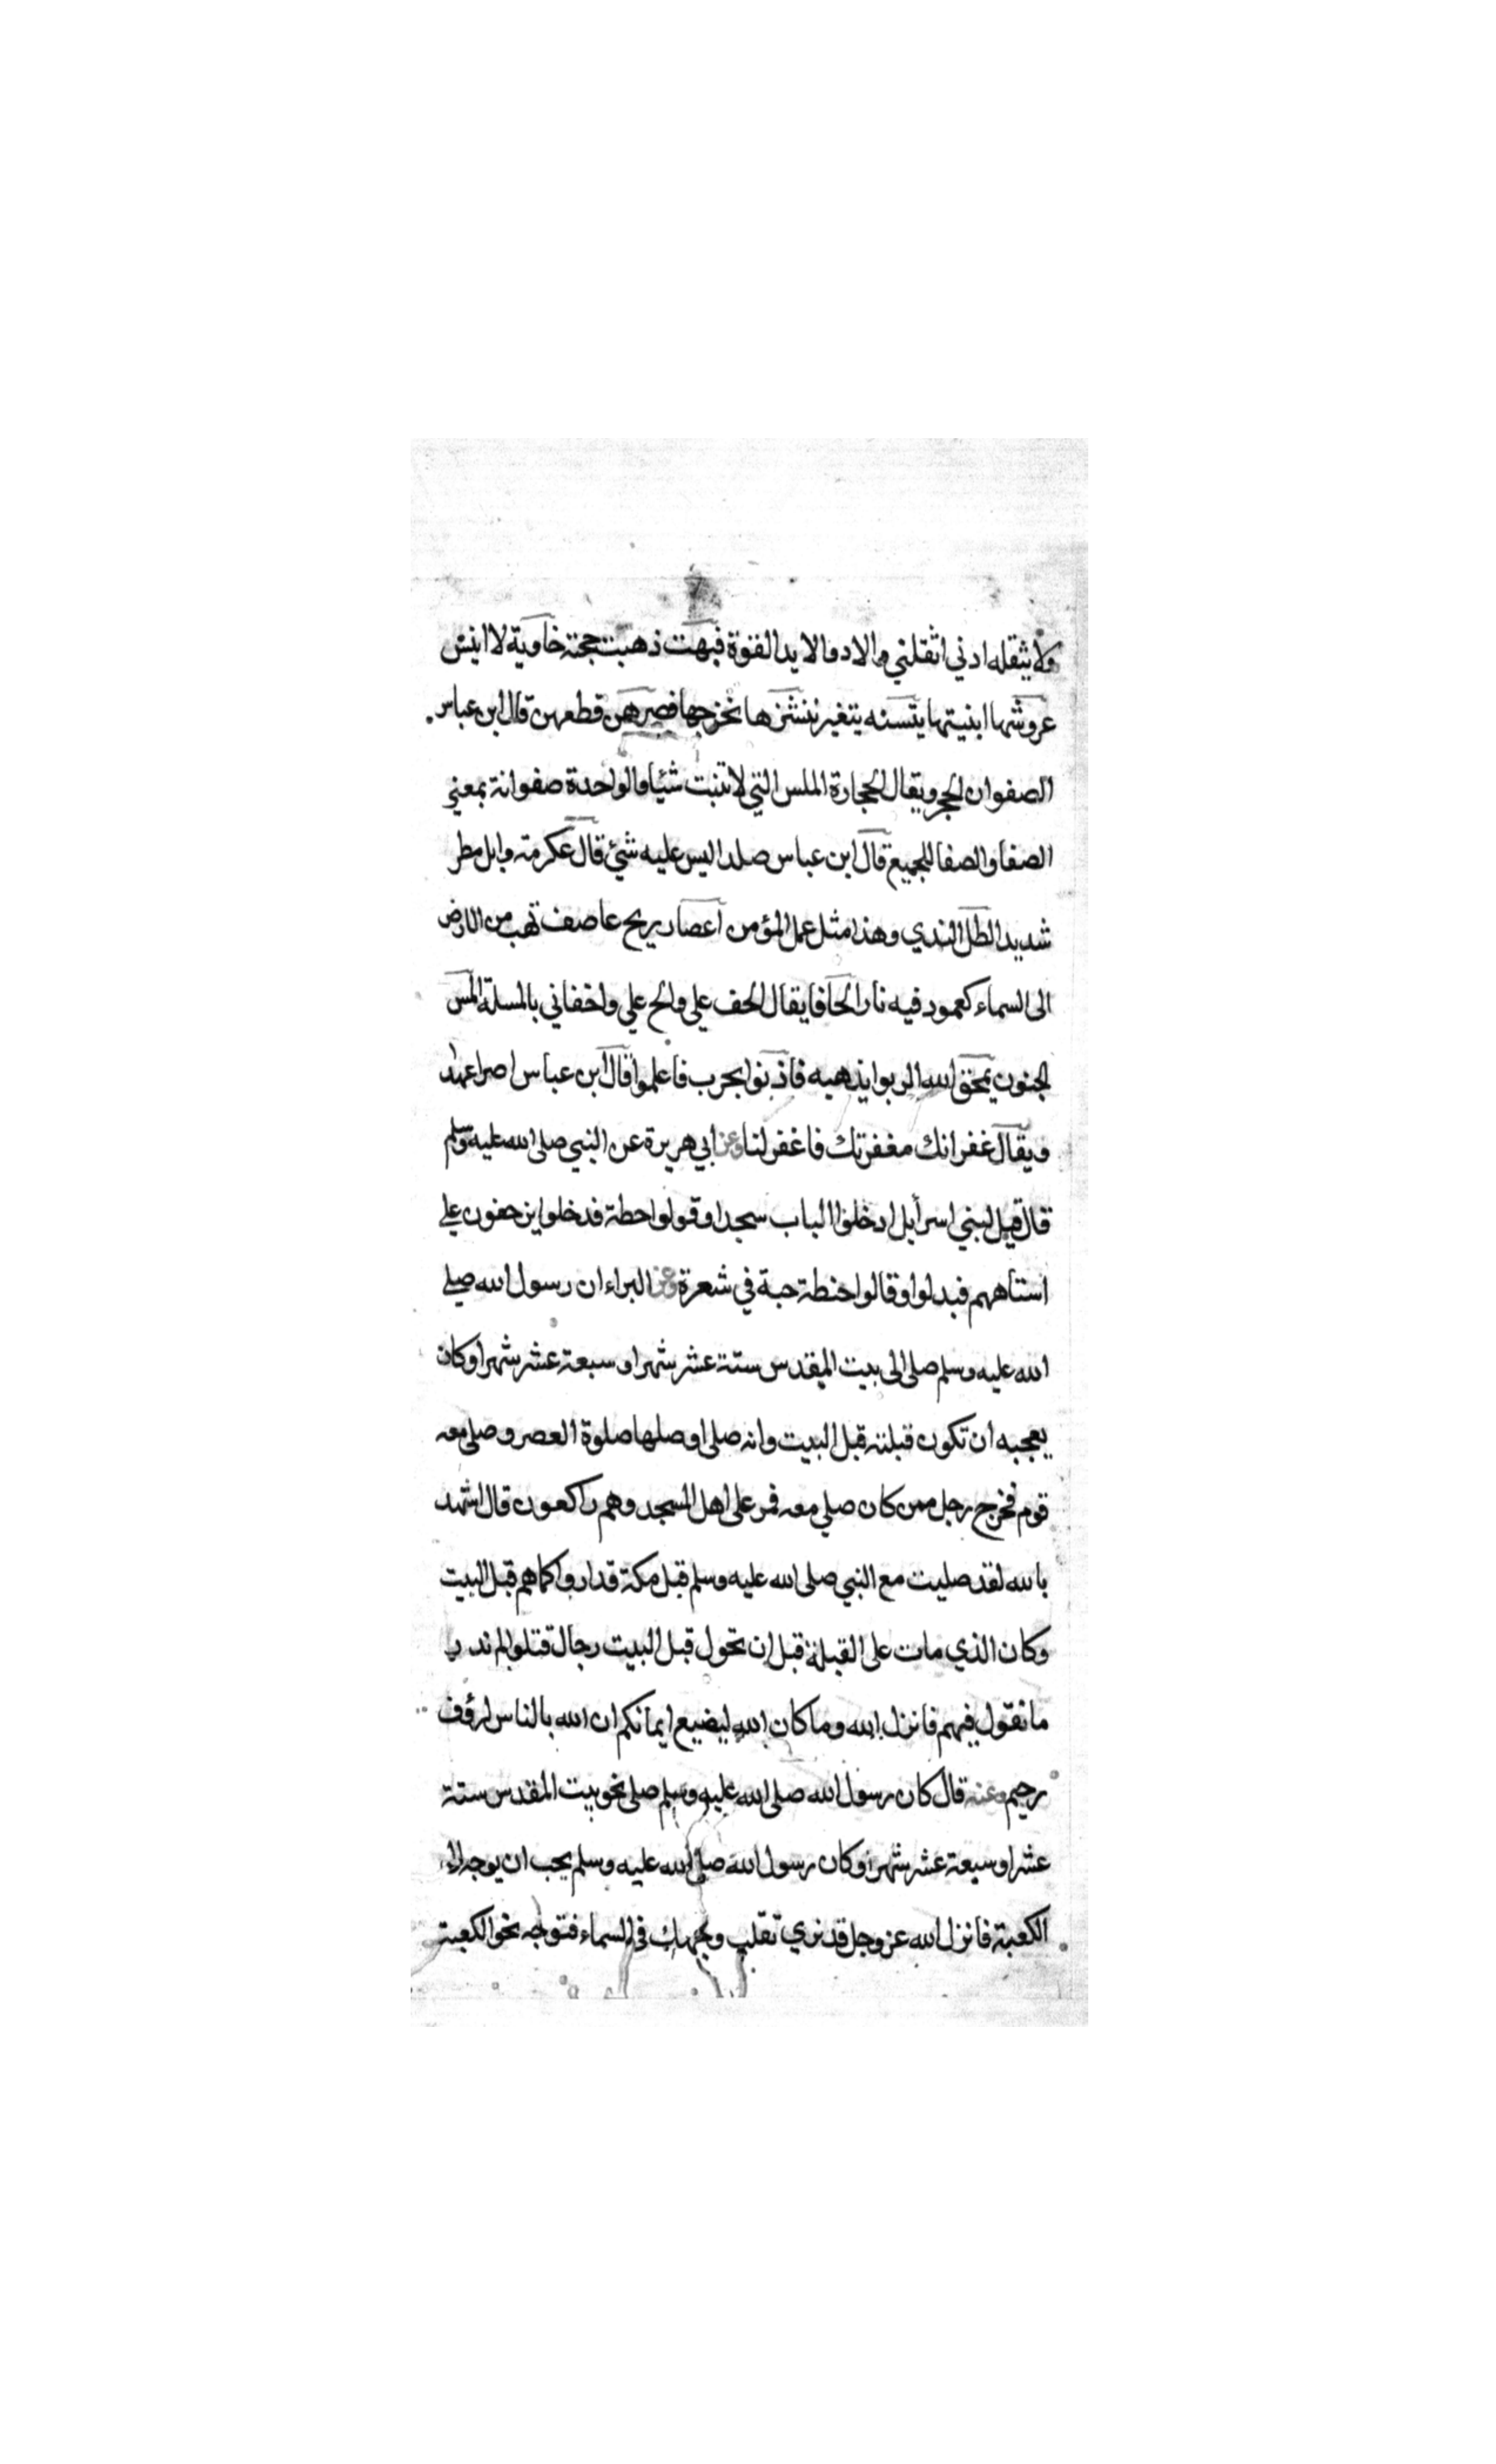 ولا يثقله ادني اثقلني والاد والايد القوة فبهت ذهبت حجته خاوية لا انيس
عروشها ابنيتها يتسنه يتغير ننشزها نخرجها فصرهن قطعهن قال ابن عباس
الصفوان الحجر ويقال الحجارة الملس التي لا تنبت شيئا والواحدة صفوانة بمعني
الصفا والصفا للجميع قال ابن عباس صلدا ليس عليه شئ قال عكرمة وابل مطر
شديد الطل الندي وهذا مثل عمل المؤمن اعصار ريح عاصف تهب من الارض
الى السماء كعمود فيه نار الحافا يقال الحف علي والح علي واخفاني بالمسلة المس
الجنون يمحق الله الربوا يذهبه فاذنوا بحرب فاعلموا قال ابن عباس اصرا عهدا
ويقال غفرانك مغفرتك فاغفر لنا وعن ابي هريرة عن النبي صلى الله عليه وسلم
قال قيل لبني اسرأيل ادخلوا الباب سجدا وقولوا حطة فدخلوا يزحفون علي
استاههم فبدلوا وقالوا حنطة حبة في شعرة وعن البراء ان رسول الله صلى
الله عليه وسلم صلى الى بيت المقدس ستة عشر شهرا او سبعة عشر شهرا وكان
يعجبه ان تكون قبلته قبل البيت وانه صلى او صلها صلوة العصر وصلى معه
قوم فخرج رجل ممن كان صلي معه فمر على اهل المسجد وهم راكعون قال اشهد
بالله لقد صليت مع النبي صلى الله عليه وسلم قبل مكة فداروا كما هم قبل البيت
وكان الذي مات على القبلة قبل ان تحول قبل البيت رجال قتلوا لم ندر
ما نقول فيهم فانزل الله وما كان الله ليضيع ايمانكم ان الله بالناس لرؤف
رحيم وعنه قال كان رسول الله صلى الله عليه وسلم صلى نحو بيت المقدس ستة
عشر او سبعة عشر شهرا وكان رسول الله صلى الله عليه وسلم يحب ان يوجه الى
الكعبة فانزل الله عز وجل قد نري تقلب وجهك في السماء فتوجه نحو الكعبة